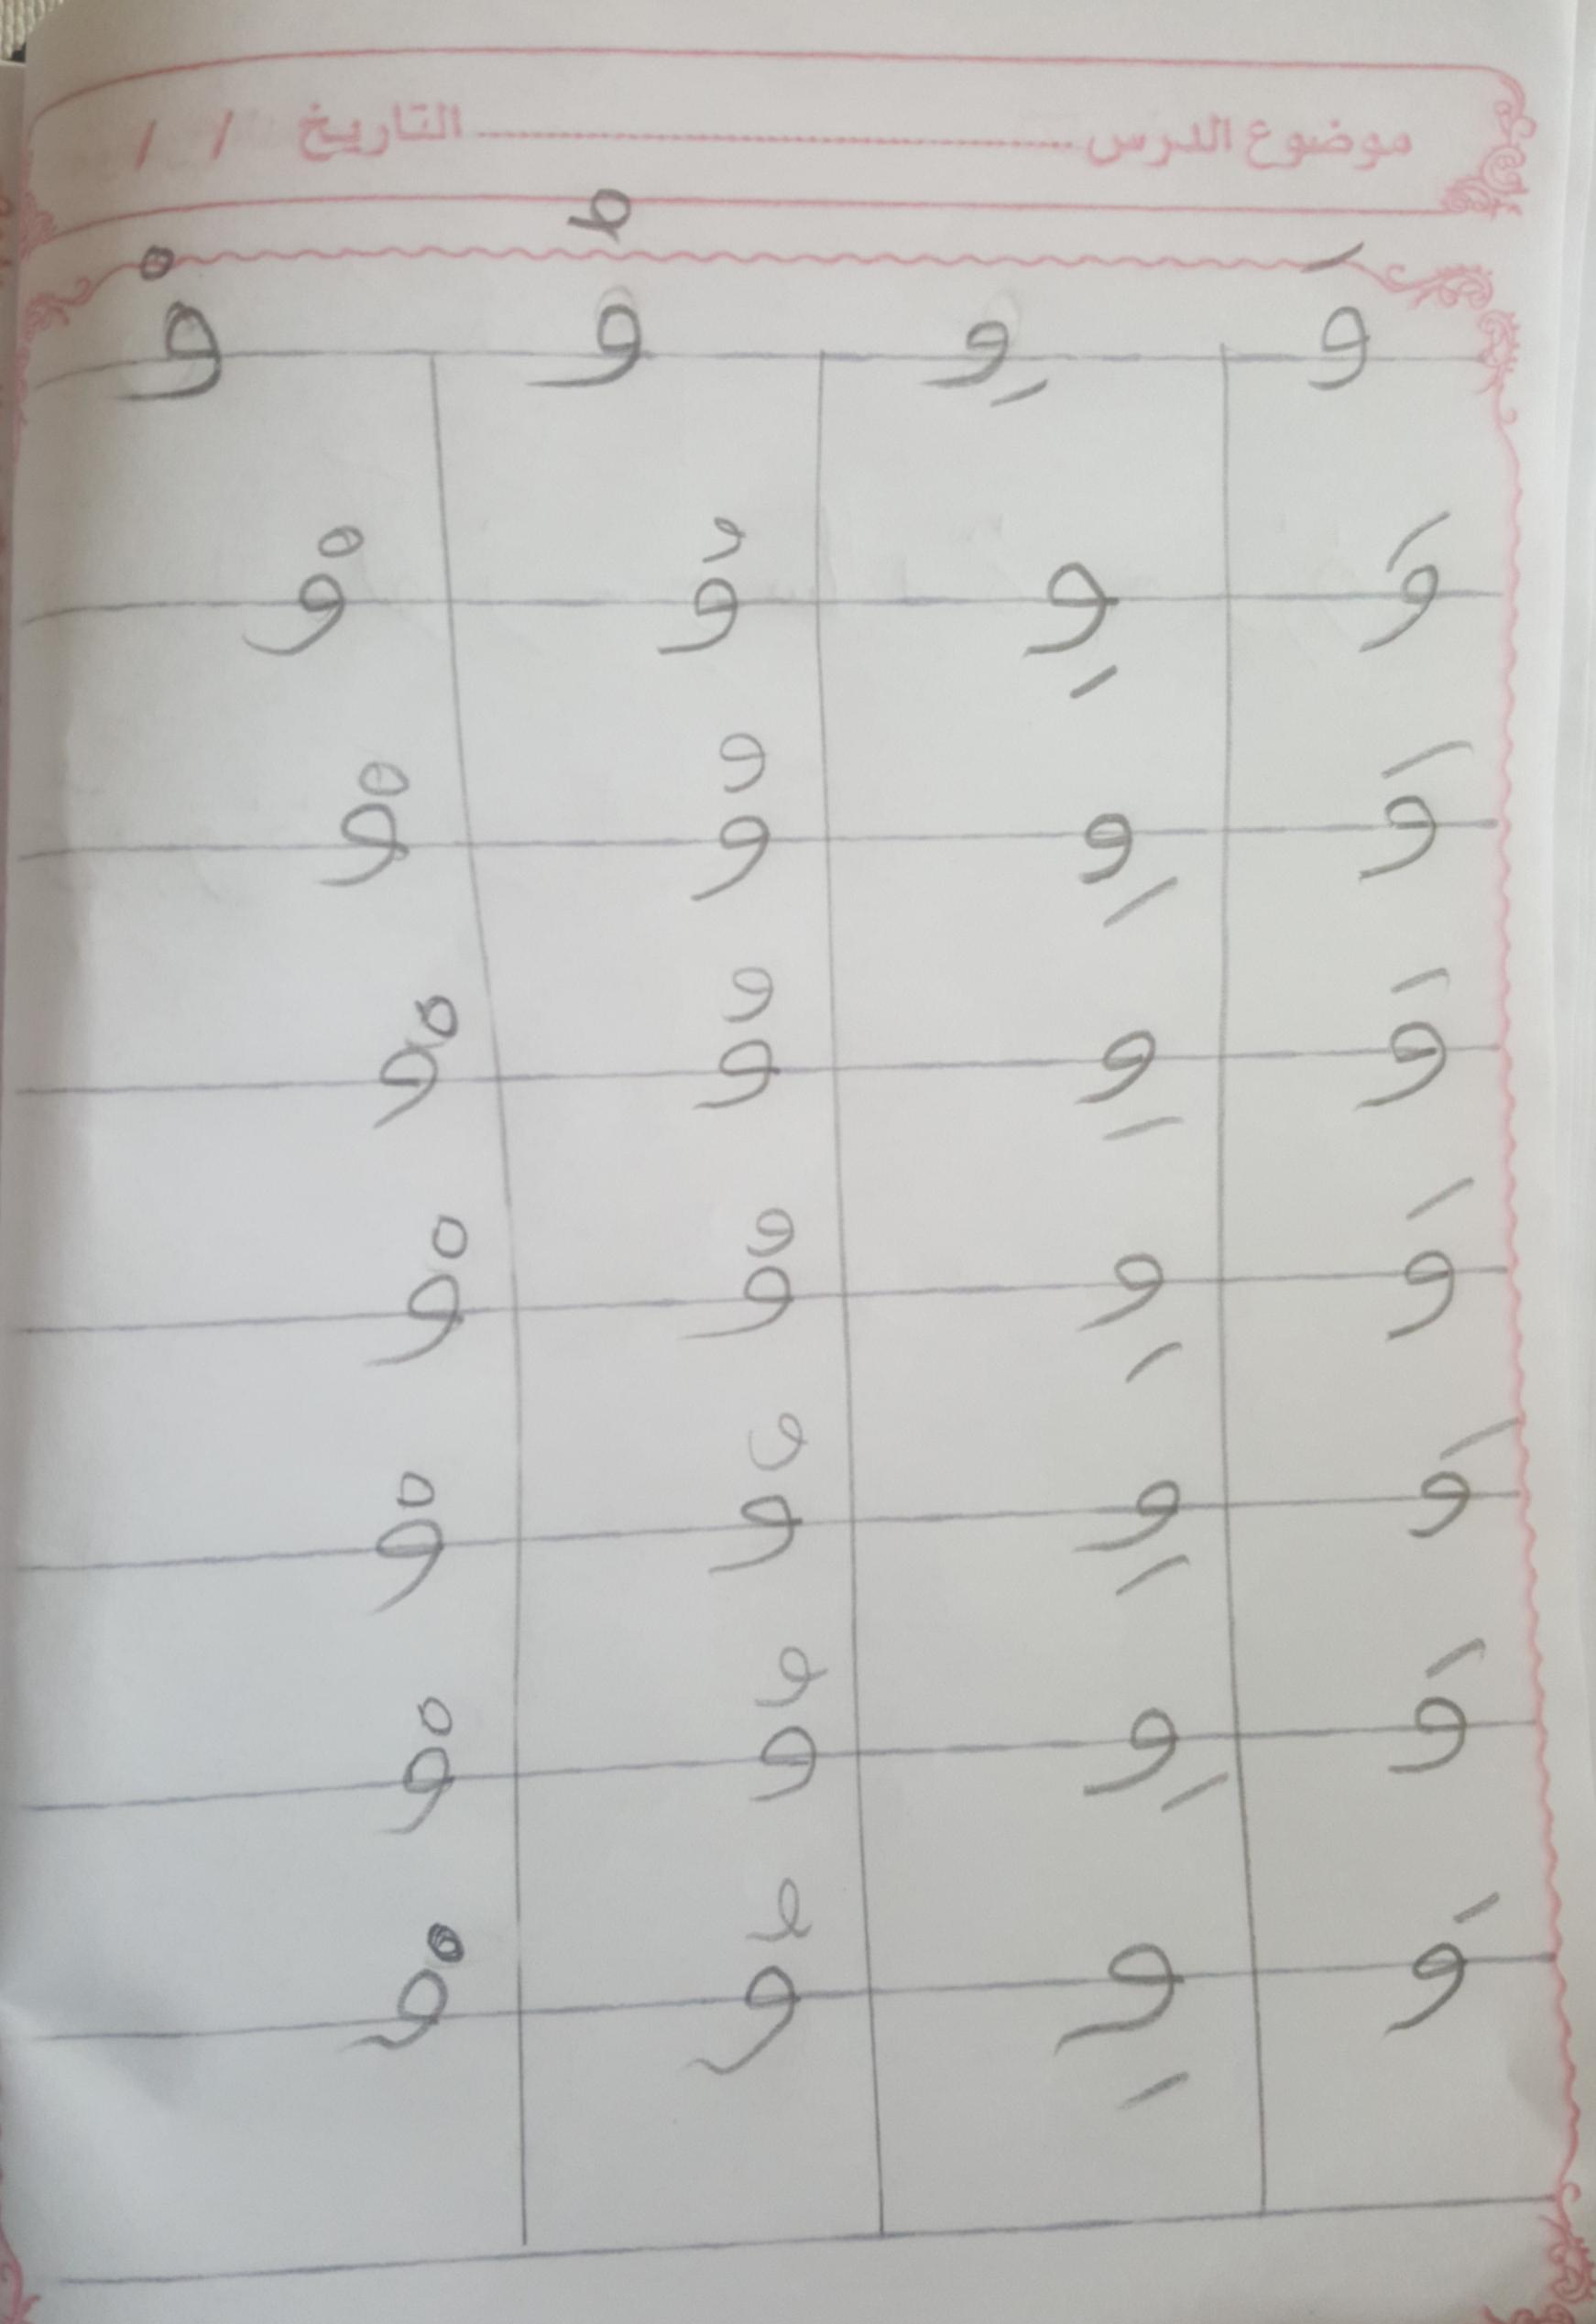 موضوع الدرس ........................ التاريخ / /
وَ وِ وُ وْ
وَ وِ وُ وْ
وَ وِ وُ وْ
وَ وِ وُ وْ
وَ وِ وُ وْ
وَ وِ وُ وْ
وَ وِ وُ وْ
وَ وِ وُ وْ